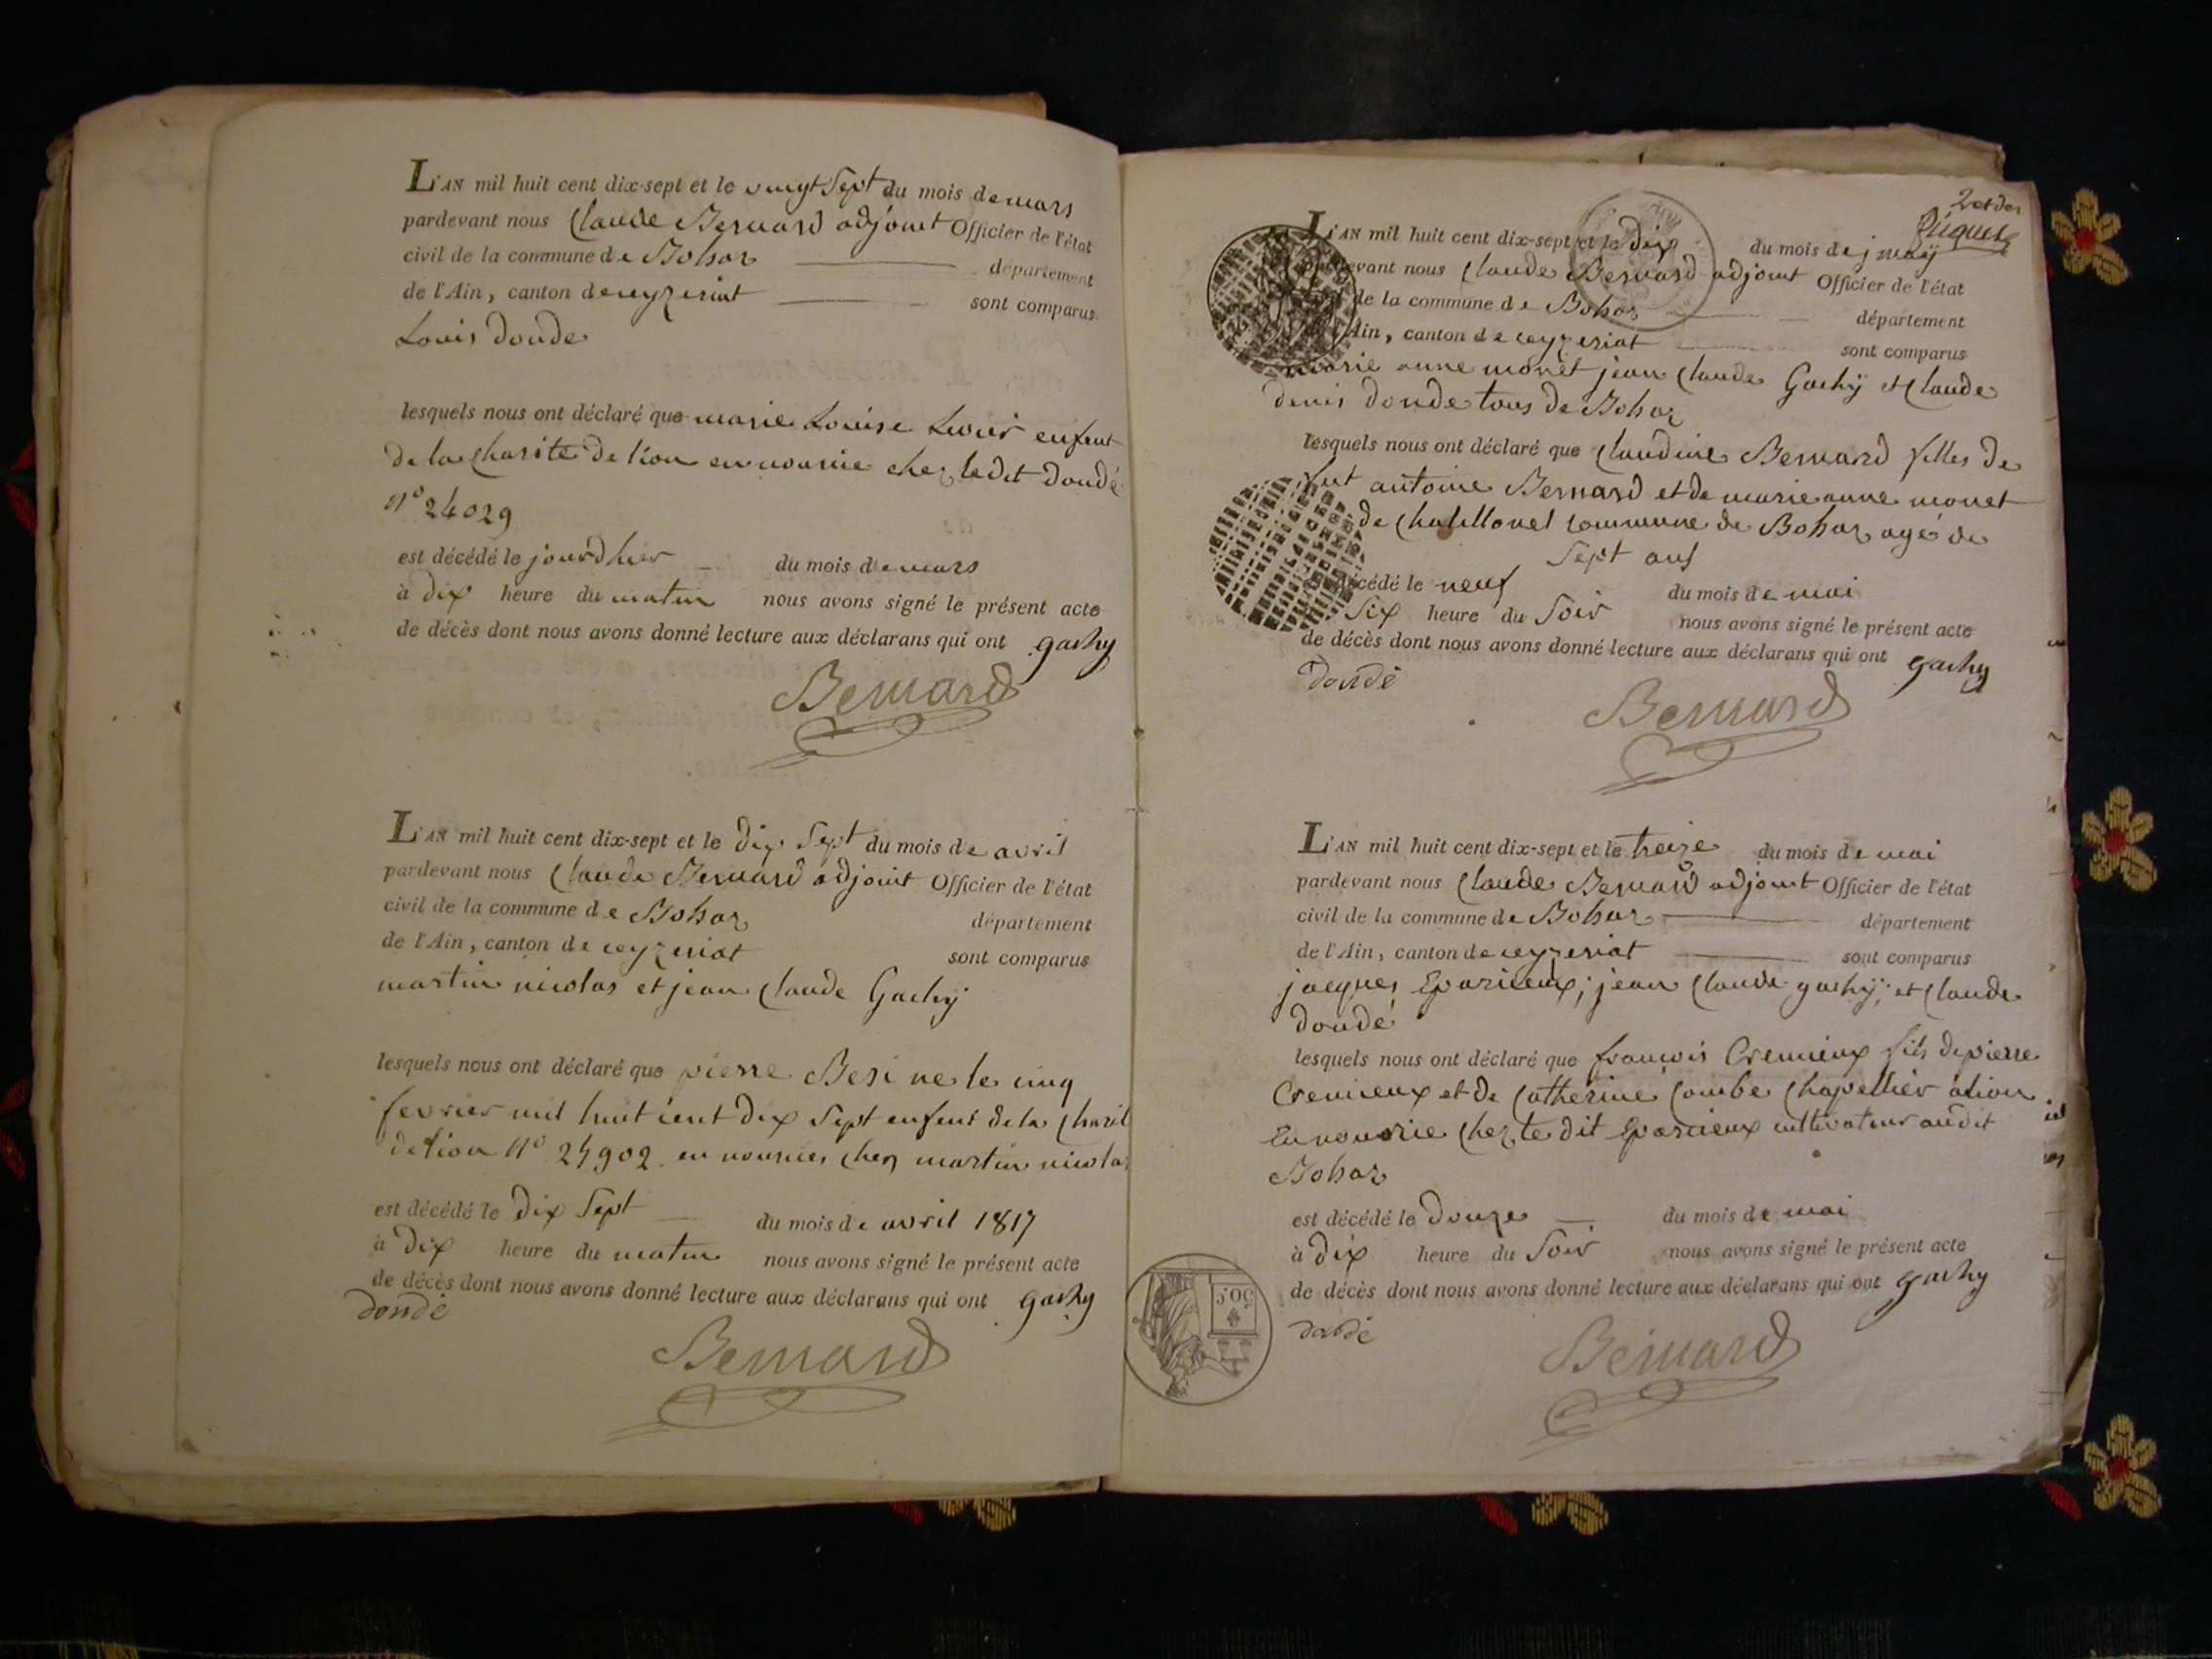 L'AN mil huit cent dix-sept et le vingt Sept du mois de mars
pardevant nous Claude Bernard adjoint Officier de l'état
civil de la commune de Bohas département
de l'Ain, canton de ceyzeriat sont comparus
Louis doude
lesquels nous ont déclaré que marie Louise enfent
de la Charité de lion en nourrie chez le dit Doudé
n° 24029
est décédé le jourdhier du mois de mars
à dix heure du matin nous avons signé le présent acte
de décès dont nous avons donné lecture aux déclarans qui ont gachy
Bernard
L'AN mil huit cent dix-sept et le dix Sept du mois de avril
pardevant nous Claude Bernard adjoint Officier de l'état
civil de la commune de Bohas département
de l'Ain, canton de ceyzeriat sont comparus
martin nicolas et jean Claude Gachÿ
lesquels nous ont déclaré que pierre Besi ne le cinq
fevrier mil huit cent dix Sept enfent de la Charit
de lion n° 24902 en nourrice chez martin nicolas
est décédé le dix Sept du mois de avril 1817
à dix heure du matin nous avons signé le présent acte
de décès dont nous avons donné lecture aux déclarans qui ont gachy
doudé
Bernard
L'AN mil huit cent dix-sept et le dix du mois de may
pardevant nous Claude Bernard adjoint Officier de l'état
de la commune de Bohas département
Ain, canton de ceyzeriat sont comparus
marie anne monet jean Claude Gachÿ et Claude
denis doude tous de Bohas
lesquels nous ont déclaré que Claudine Bernard filles de
fut antoine Bernard et de marie anne monet
de Chatillonet commune de Bohas agé de
Sept ans
décédé le neuf du mois de mai
Six heure du Soir nous avons signé le présent acte
de décès dont nous avons donné lecture aux déclarans qui ont gachy
doudé
Bernard
L'AN mil huit cent dix-sept et le treize du mois de mai
pardevant nous Claude Bernard adjoint Officier de l'état
civil de la commune de Bohas département
de l'Ain, canton de ceyzeriat sont comparus
jacques Eparcieux; jean Claude gachÿ; et Claude
doudé
lesquels nous ont déclaré que françois Cremieux fils de pierre
Cremieux et de Catherine Combe Chapellier à lion
En nourrie Chez le dit Eparcieux cultivateur audit
Bohas
est décédé le douze du mois de mai
à dix heure du Soir nous avons signé le présent acte
de décès dont nous avons donné lecture aux déclarans qui ont gachy
doudé
Bernard